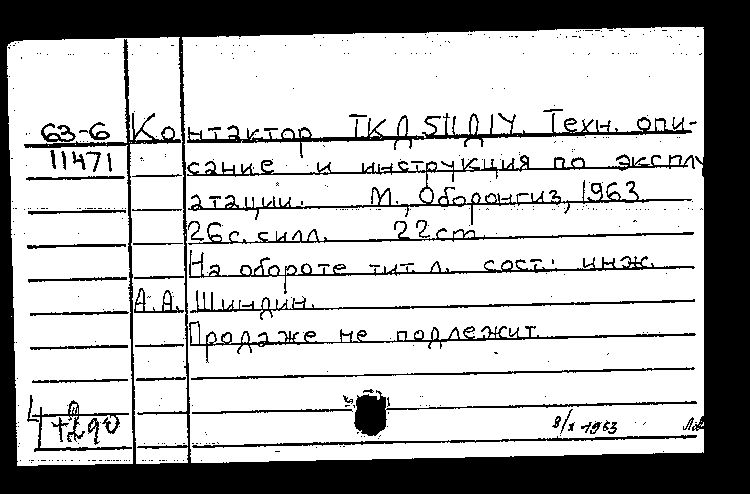 63-6 Контактор ТКД 511Д1У. Техн. опи-
11471 сание и инструкция по эксплу
атации. М., Оборонгиз, 1963
26с. силл. 22cm
На обороте тит л. сост.: инж.
А.А. Шиндин.
Продаже не подлежит.
8/X -1963